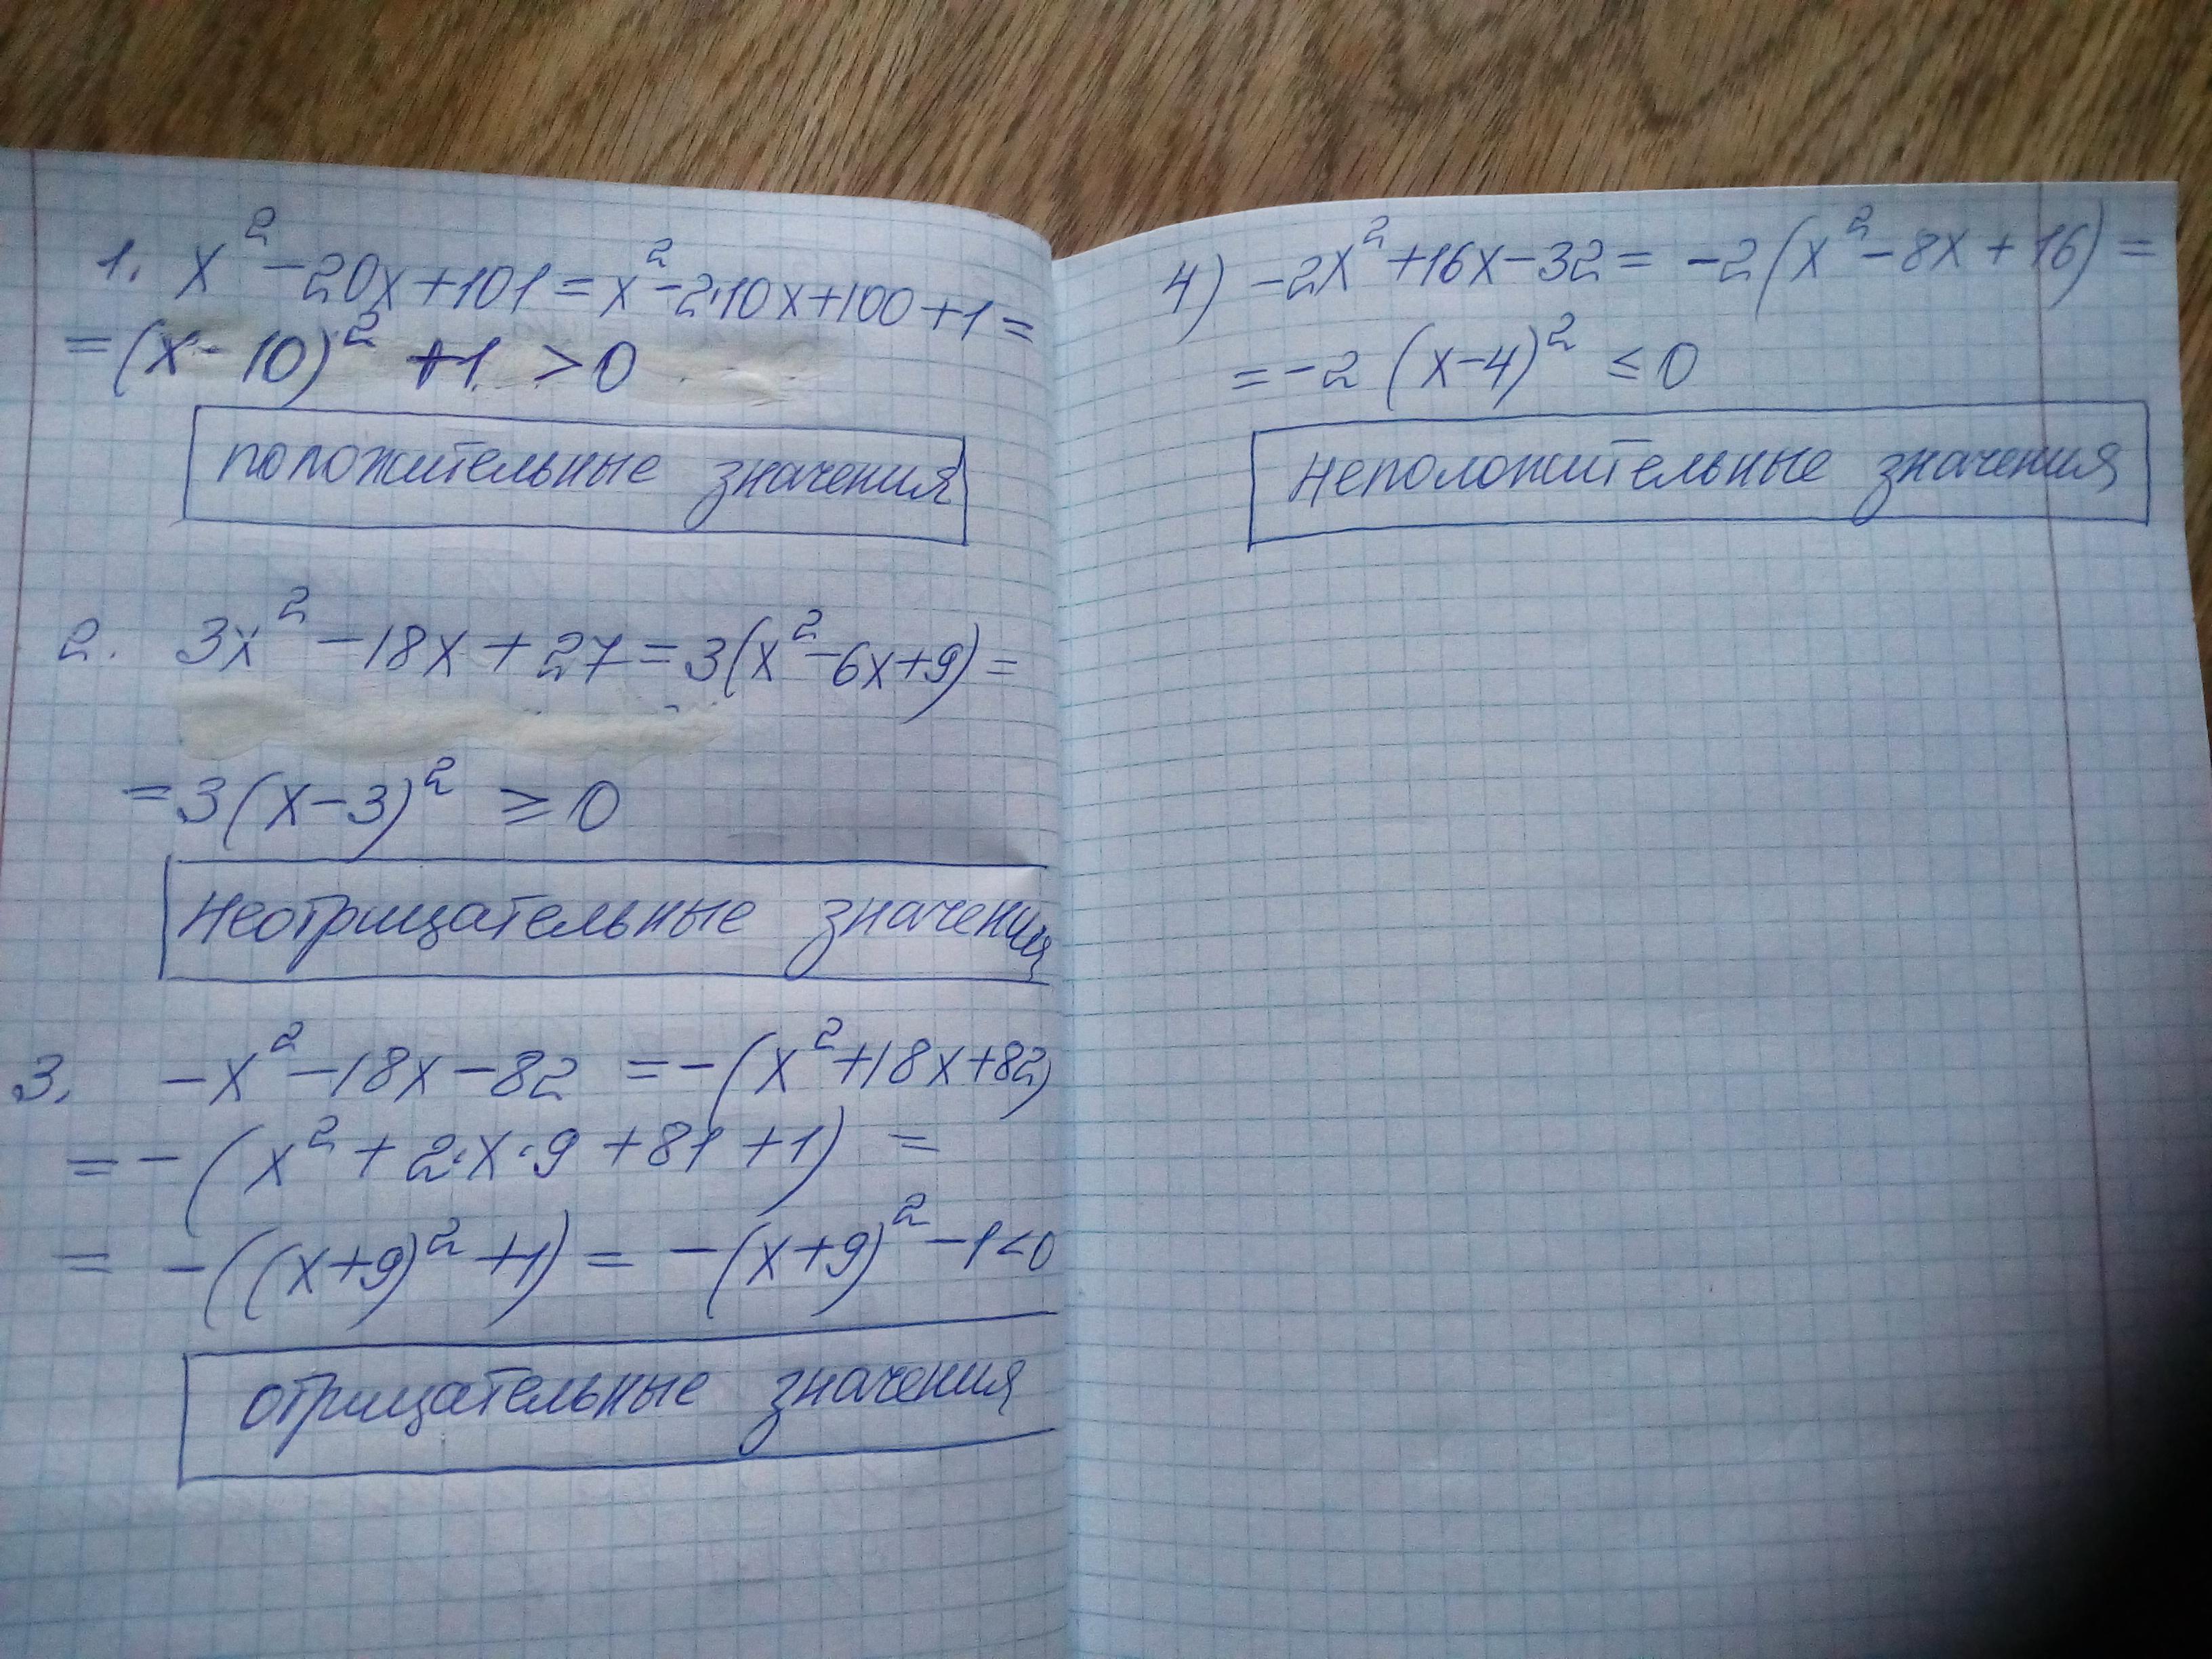 1. x² - 20x + 101 = x² - 2·10x + 100 + 1 =
= (x - 10)² + 1 > 0
положительные значения
2. 3x² - 18x + 27 = 3(x² - 6x + 9) =
= 3(x - 3)² ≥ 0
неотрицательные значения
3. -x² - 18x - 82 = -(x² + 18x + 82)
= -(x² + 2·x·9 + 81 + 1) =
= -((x+9)² + 1) = -(x+9)² - 1 < 0
отрицательные значения
4) -2x² + 16x - 32 = -2(x² - 8x + 16) =
= -2(x - 4)² ≤ 0
неположительные значения